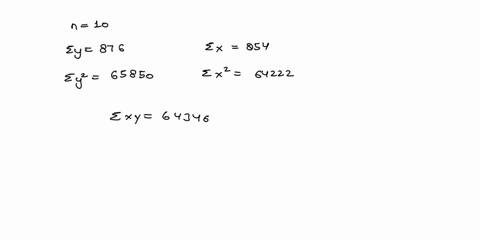 n = 10
Σy = 876 Σx = 854
Σy² = 65850 Σx² = 64222
Σxy = 64346